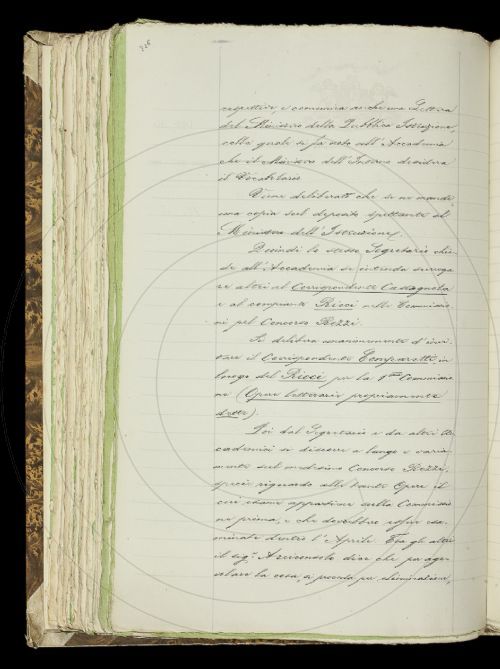 rispettive, e comunica anche una Lettera
del Ministero della Pubblica Istruzione,
colla quale si fa nota all'Accademia
che il Ministero dell'Interno desidera
il Vocabolario.
Viene deliberato che se ne mandi
una copia sul deposito spettante al
Ministero dell'Istruzione.
Quindi lo stesso Segretario chie-
de all'Accademia se intenda surroga-
re altri al Corrispondente Castagnola
e al compianto Ricci nelle Commissio-
ni pel Concorso Rezzi.
Si delibera unanimemente d'invi-
tare il Corrispondente Comparetti in
luogo del Ricci per la 1ma Commissio-
ne (Opere letterarie propriamente
dette).
Poi dal Segretario e da altri Ac-
cademici si discorre a lungo e varia-
mente sul medesimo Concorso Rezzi,
specie riguardo alle tante Opere il
cui esame appartiene alla Commissio-
ne prima, e che dovrebbe esser esa-
minate dentro l'Aprile. Tra gli altri
il sigr. Arciconsolo dice che per age-
volare la cosa, si proceda per eliminazione,